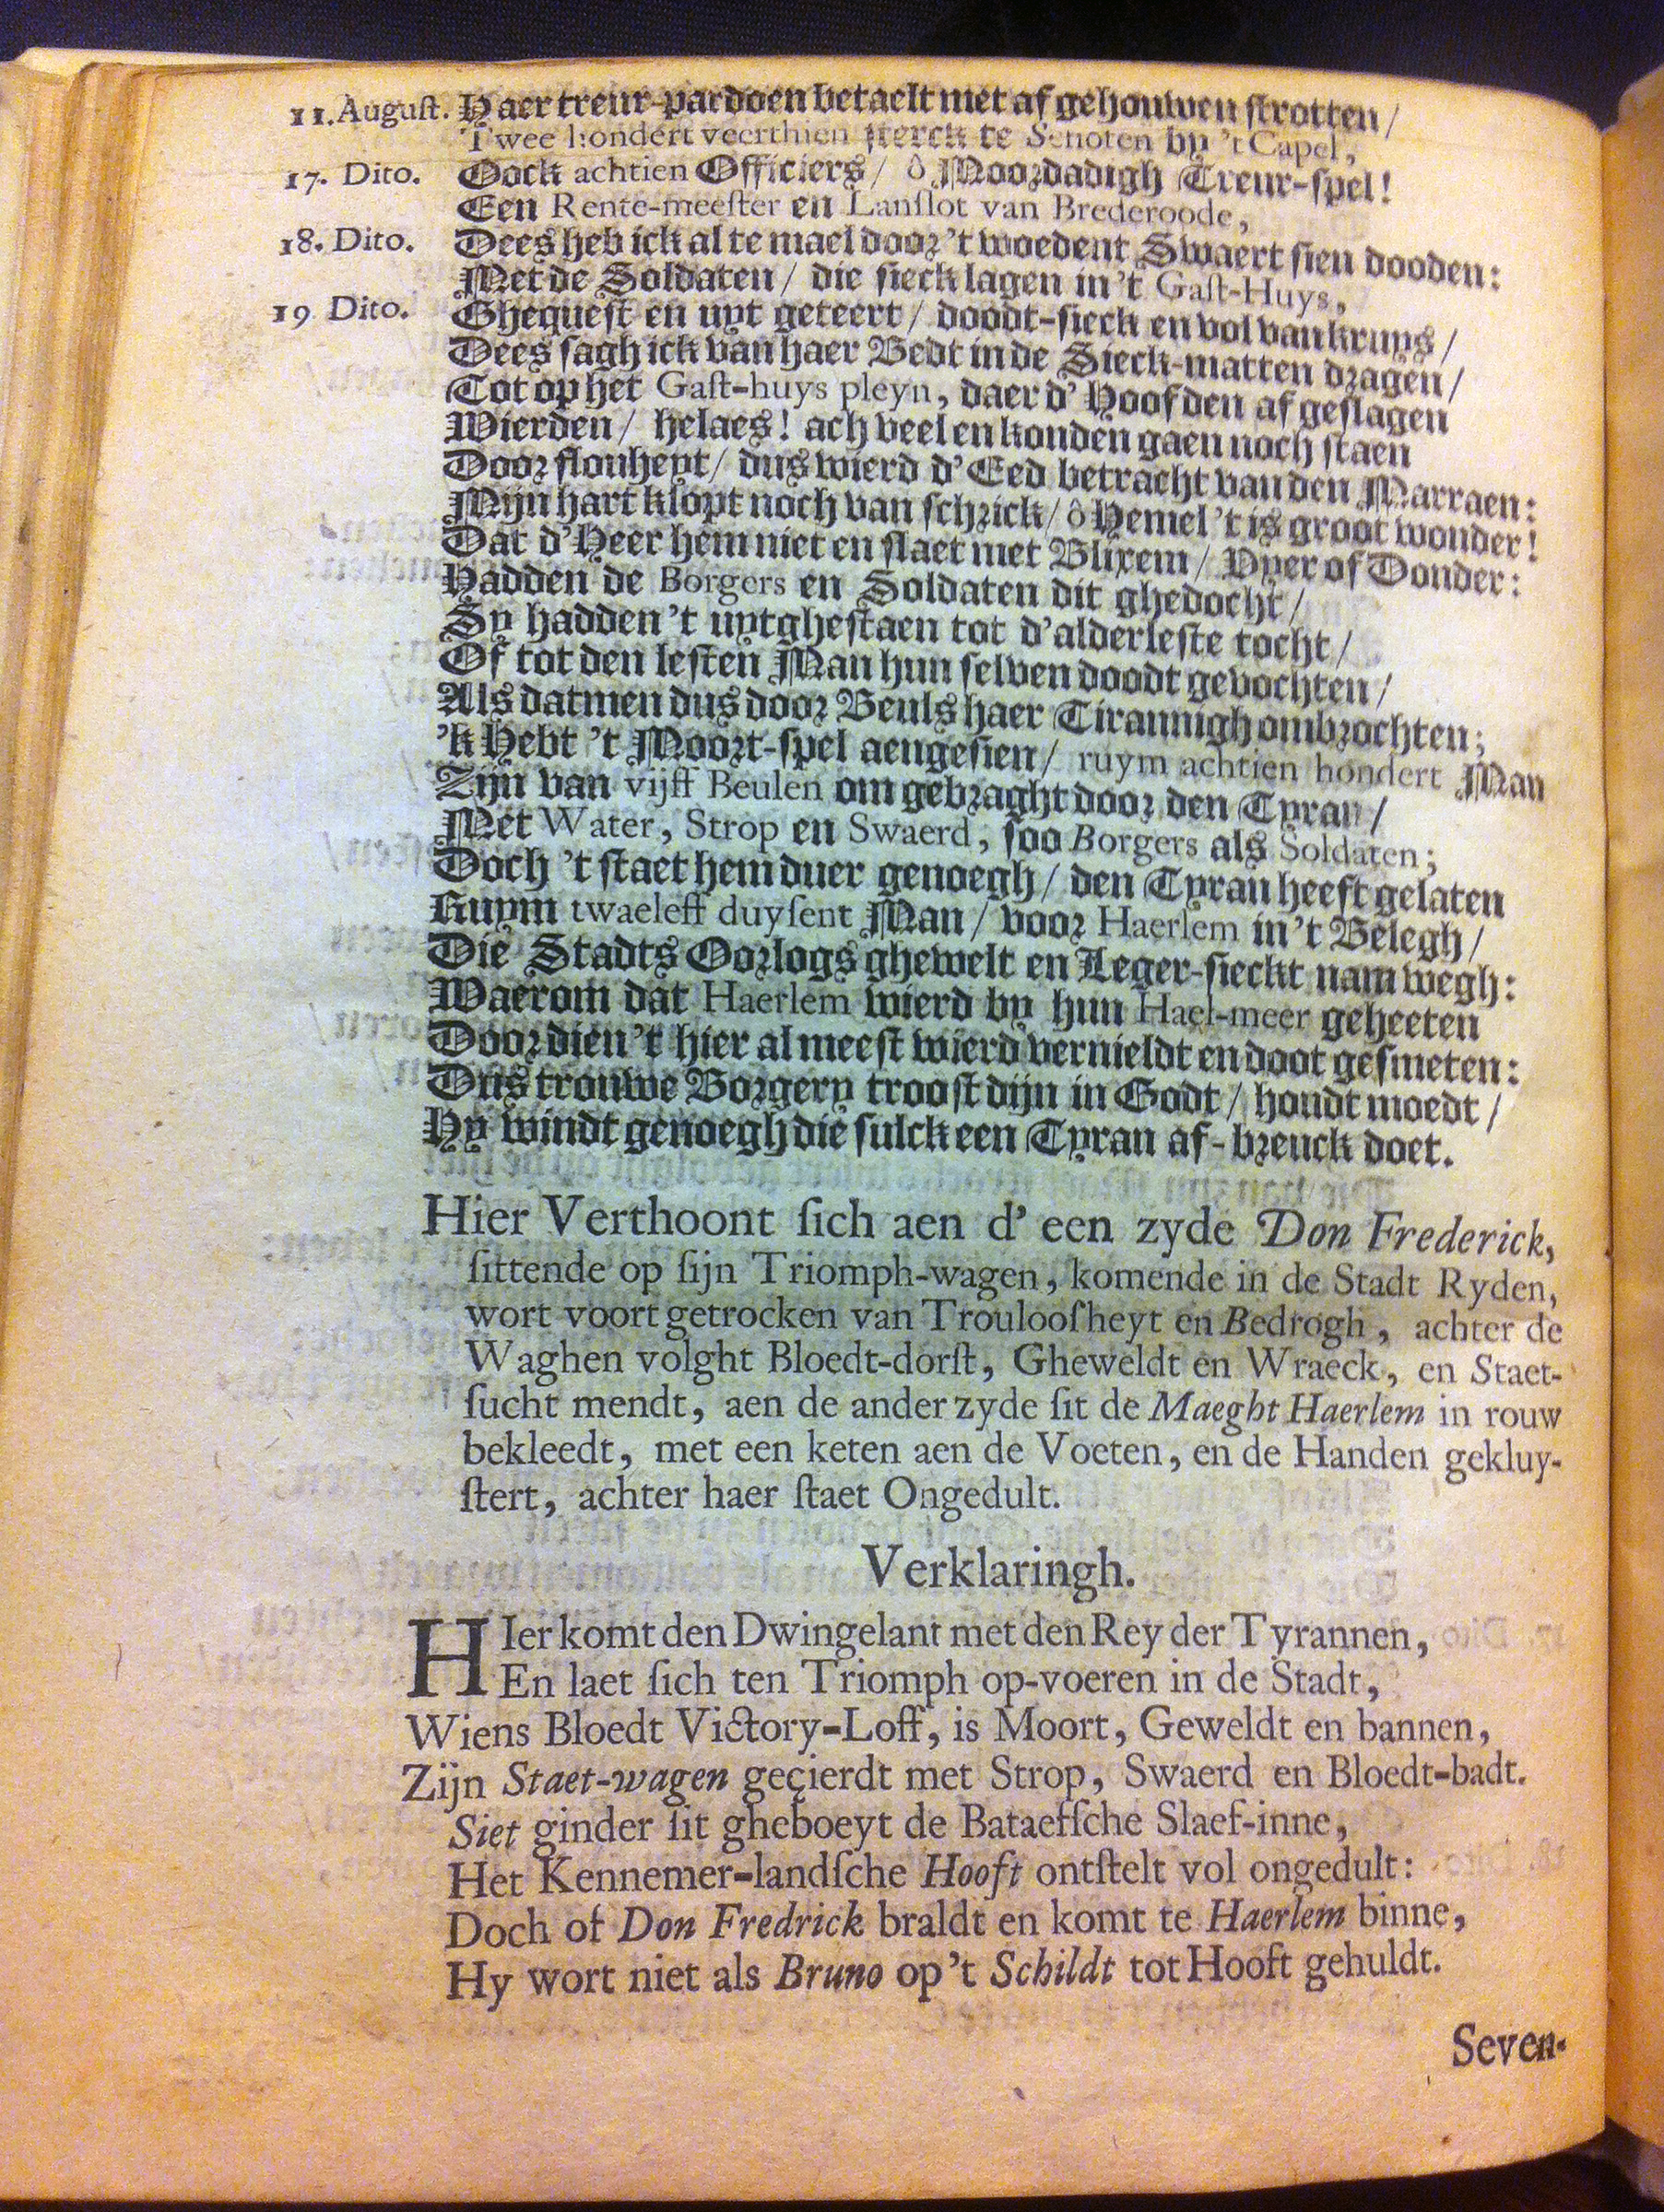 11. Auguſt. Haer treur-pardoen betaelt met af gehouwen ſtrotten /
Twee hondert veerthien ſterck te Schoten by 't Capel,
17. Dito. Oock achtien Officiers / ô Moordadigh Treur-ſpel!
Een Rente-meeſter en Lanſlot van Brederoode,
18. Dito. Dees heb ick al te mael door 't woedent Swaert ſien dooden:
Met de Soldaten / die ſieck lagen in 't Gaſt-Huys,
19 Dito. Ghequeſt en uyt geteert / doodt-ſieck en vol van kruys /
Dees ſagh ick van haer Bedt in de Sieck-matten dragen /
Tot op het Gaſt-huys pleyn, daer d' Hoofden af geſlagen
Wierden / helaes! ach veel en konden gaen noch ſtaen
Door flouheyt / dus wierd d' Eed betracht van den Marraen:
Mijn hart klopt noch van ſchrick / ô Hemel 't is groot wonder!
Dat d' Heer hem niet en ſlaet met Blixem / Vyer of Donder:
Hadden de Borgers en Soldaten dit ghedocht /
Sy hadden 't uytgheſtaen tot d' alderleſte tocht /
Of tot den leſten Man hun ſelven doodt gevochten /
Als datmen dus door Beuls haer Tirannigh ombrochten;
'k Hebt 't Moort-ſpel aengeſien / ruym achtien hondert Man
Zijn van vijff Beulen om gebraght door den Tyran /
Met Water, Strop en Swaerd, ſoo Borgers als Soldaten;
Doch 't ſtaet hem duer genoegh / den Tyran heeft gelaten
Ruym twaeleff duyſent Man / voor Haerlem in 't Belegh /
Die Stadts Oorlogs ghewelt en Leger-ſieckt nam wegh:
Waerom dat Haerlem wierd by hun Hael-meer geheeten
Doordien 't hier al meeſt wierd vernieldt en doot geſmeten:
Dus trouwe Borgery trooſt dijn in Godt / houdt moedt /
Hy windt genoegh die ſulck een Tyran af-breuck doet.
Hier Verthoont ſich aen d' een zyde Don Frederick,
ſittende op ſijn Triomph-wagen, komende in de Stadt Ryden,
wort voort getrocken van Trouloofheyt en Bedrogh, achter de
Waghen volght Bloedt-dorſt, Gheweldt en Wraeck, en Staet-
ſucht mendt, aen de ander zyde ſit de Maeght Haerlem in rouw
bekleedt, met een keten aen de Voeten, en de Handen gekluy-
ſtert, achter haer ſtaet Ongedult.
Verklaringh.
HIer komt den Dwingelant met den Rey der Tyrannen,
En laet ſich ten Triomph op-voeren in de Stadt,
Wiens Bloedt Victory-Loff, is Moort, Geweldt en bannen,
Zijn Staet-wagen geçierdt met Strop, Swaerd en Bloedt-badt.
Siet ginder ſit gheboeyt de Bataefſche Slaef-inne,
Het Kennemer-landſche Hooft ontſtelt vol ongedult:
Doch of Don Fredrick braldt en komt te Haerlem binne,
Hy wort niet als Bruno op 't Schildt tot Hooft gehuldt.
Seven-